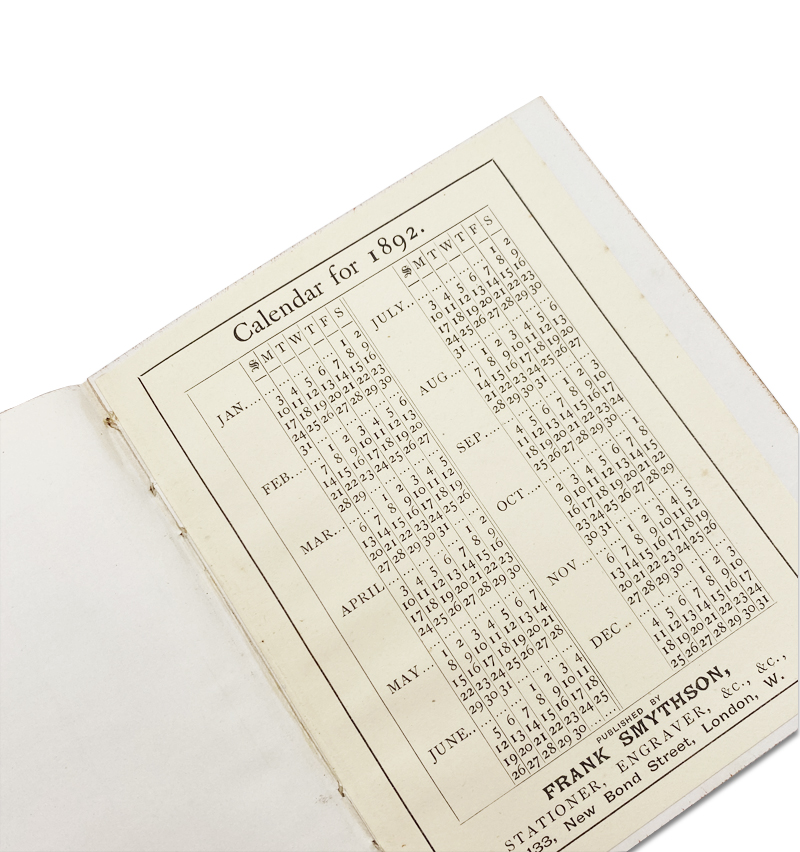 Calendar for 1892.
S M T W T F S
JAN... 1 2
3 4 5 6 7 8 9
10 11 12 13 14 15 16
17 18 19 20 21 22 23
24 25 26 27 28 29 30
31
FEB... 1 2 3 4 5 6
7 8 9 10 11 12 13
14 15 16 17 18 19 20
21 22 23 24 25 26 27
28 29
MAR... 1 2 3 4 5
6 7 8 9 10 11 12
13 14 15 16 17 18 19
20 21 22 23 24 25 26
27 28 29 30 31
APRIL 1 2
3 4 5 6 7 8 9
10 11 12 13 14 15 16
17 18 19 20 21 22 23
24 25 26 27 28 29 30
MAY... 1 2 3 4 5 6 7
8 9 10 11 12 13 14
15 16 17 18 19 20 21
22 23 24 25 26 27 28
29 30 31
JUNE... 1 2 3 4
5 6 7 8 9 10 11
12 13 14 15 16 17 18
19 20 21 22 23 24 25
26 27 28 29 30
S M T W T F S
JULY... 1 2
3 4 5 6 7 8 9
10 11 12 13 14 15 16
17 18 19 20 21 22 23
24 25 26 27 28 29 30
31
AUG... 1 2 3 4 5 6
7 8 9 10 11 12 13
14 15 16 17 18 19 20
21 22 23 24 25 26 27
28 29 30 31
SEP... 1 2 3
4 5 6 7 8 9 10
11 12 13 14 15 16 17
18 19 20 21 22 23 24
25 26 27 28 29 30
OCT... 1
2 3 4 5 6 7 8
9 10 11 12 13 14 15
16 17 18 19 20 21 22
23 24 25 26 27 28 29
30 31
NOV... 1 2 3 4 5
6 7 8 9 10 11 12
13 14 15 16 17 18 19
20 21 22 23 24 25 26
27 28 29 30
DEC... 1 2 3
4 5 6 7 8 9 10
11 12 13 14 15 16 17
18 19 20 21 22 23 24
25 26 27 28 29 30 31
PUBLISHED BY
FRANK SMYTHSON,
STATIONER, ENGRAVER, &c., &c.,
133, New Bond Street, London, W.